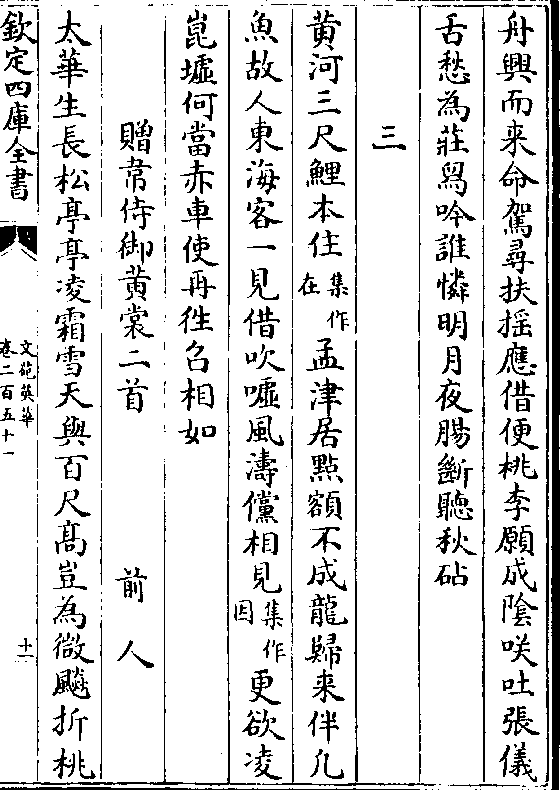 舟興而来命駕尋扶揺應借便桃李願成陰咲吐張儀
舌愁為莊舄吟誰憐明月夜腸斷聽秋砧
三
黄河三尺鯉本住集作在孟津居點額不成龍歸来伴凡
魚故人東海客一見借吹噓風濤儻相見集作因更欲凌
崑墟何當赤車使再徃召相如
贈韋侍御黄裳二首 前人
太華生長松亭亭凌霜雪天與百尺髙豈為微飈折桃
欽定四庫全書
文苑英華
卷二百五十一
十一